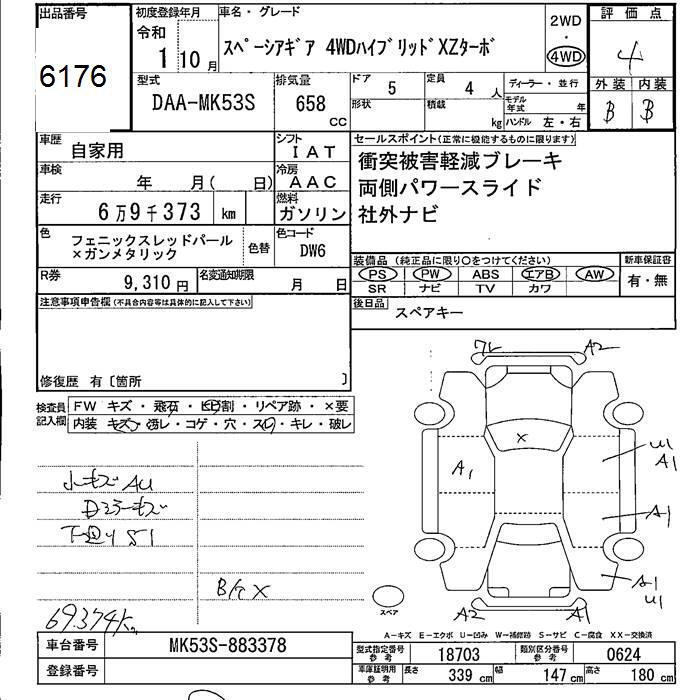 出品番号
6176
初度登録年月
令和
1 10 月
車名・グレード
スペーシアギア 4WDハイブリッドXZターボ
2WD
・
4WD
評価点
4
外装 内装
B B
型式
DAA-MK53S
排気量
658 CC
ドア 5
定員 4 人
形状
積載 kg
ディーラー・並行
モデル年式 年
ハンドル 左・右
車歴
自家用
シフト
IAT
車検
年 月( 日)
冷房
AAC
走行
6万9千373 km
燃料
ガソリン
セールスポイント(正常に機能するものに限ります)
衝突被害軽減ブレーキ
両側パワースライド
社外ナビ
色
フェニックスレッドパール
×ガンメタリック
色替
色コード
DW6
R券
9,310 円
名変通知期限
月 日
装備品 (純正品に限り〇をつけてください)
PS PW ABS エアB AW
SR ナビ TV カワ
新車保証書
有・無
後日品
スペアキー
注意事項申告欄(不具合内容等は具体的に記入して下さい)
修復歴 有〔箇所 〕
検査員記入欄
FW キズ・飛石・ヒビ割・リペア跡・×要
内装 キズ・汚レ・コゲ・穴・スレ・キレ・破レ
小キズ AU
下廻り S1
69.374km
ワレ A2
X
A1
A1
A1
A1
A2 A1
スペア
A-キズ E-エクボ U-凹み W-補修跡 S-サビ C-腐食 XX-交換済
車台番号
MK53S-883378
登録番号
型式指定番号 参考
18703
類別区分番号 参考
0624
車庫証明用 参考
長さ 339 cm
幅 147 cm
高さ 180 cm